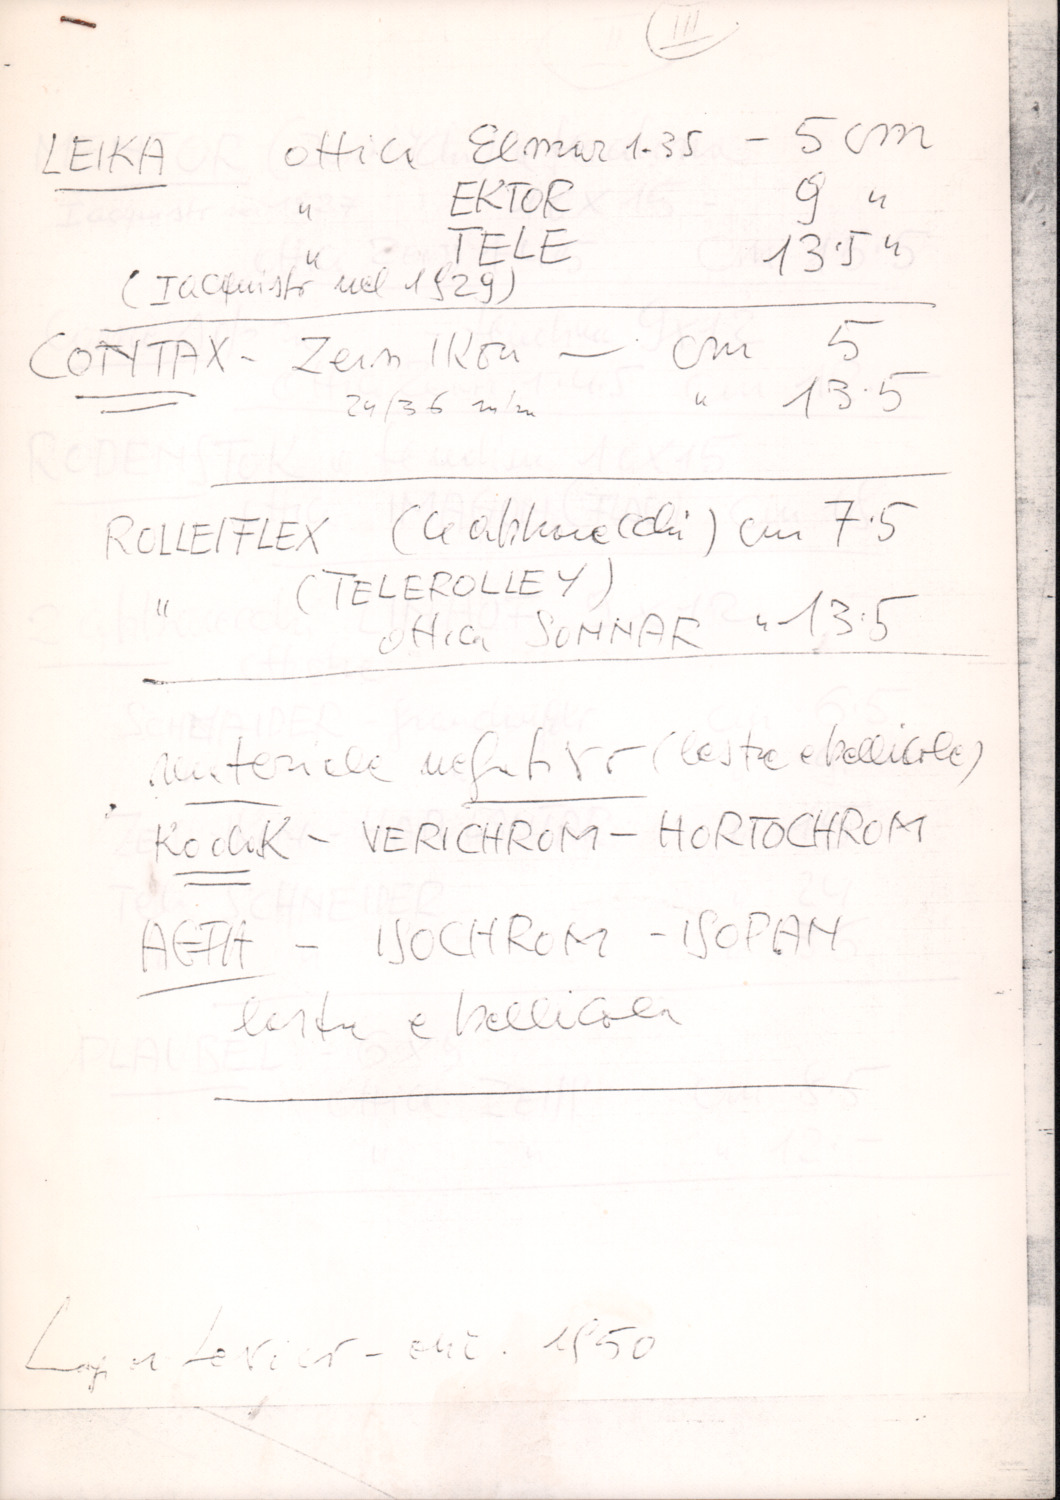 III
LEIKA ottica Elmar 1.35 - 5 cm
" EKTOR 9 "
" TELE 13.5 "
(I acquisto nel 1929)
CONTAX - Zeiss IKon — cm 5
24/36 m/m " 13.5
ROLLEIFLEX (4 apparecchi) cm 7.5
" (TELEROLLEY)
ottica SONNAR " 13.5
materiale negativo (lastre e pellicole)
Kodak - VERICHROM - HORTOCHROM
AGFA - ISOCHROM - ISOPAN
lastre e pellicola
1950